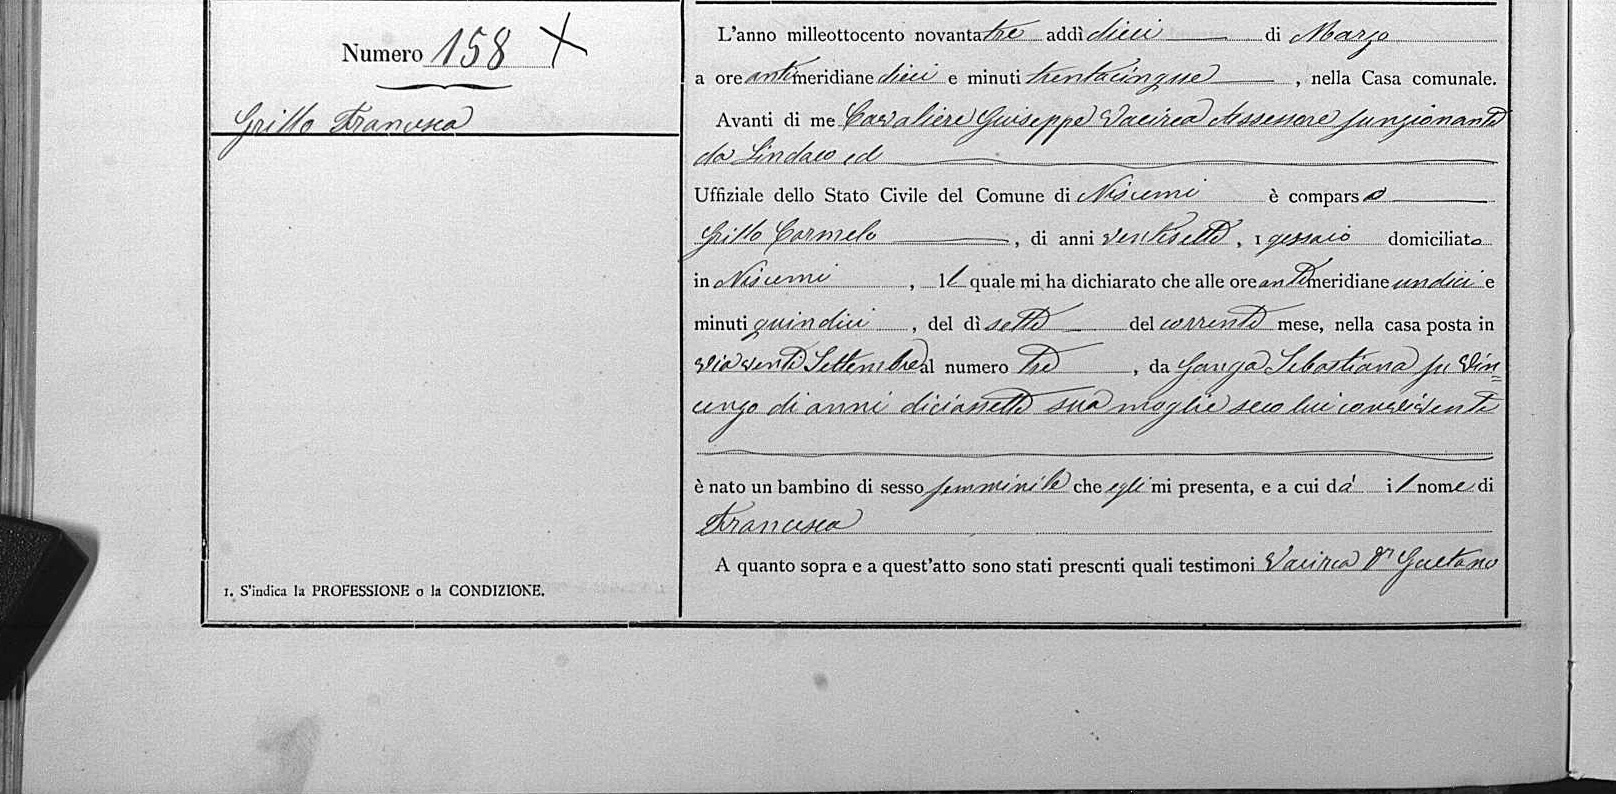 Numero 158 X
Grillo Francesca
1. S'indica la PROFESSIONE o la CONDIZIONE.
L'anno milleottocento novantatre addì dieci di Marzo
a ore antimeridiane dieci e minuti trentacinque, nella Casa comunale.
Avanti di me Cavaliere Giuseppe Vacirca Assessore funzionante
da Sindaco ed
Uffiziale dello Stato Civile del Comune di Niscemi è comparso
Grillo Carmelo, di anni ventisette, 1 gessaio domiciliato
in Niscemi, il quale mi ha dichiarato che alle ore antimeridiane undici e
minuti quindici, del dì sette del corrente mese, nella casa posta in
via venti Settembre al numero tre, da Gonga Sebastiana fu Vin=
cenzo di anni diciassette sua moglie seco lui convivente
è nato un bambino di sesso femminile che egli mi presenta, e a cui dà il nome di
Francesca
A quanto sopra e a quest'atto sono stati presenti quali testimoni Vacirca Dr Gaetano